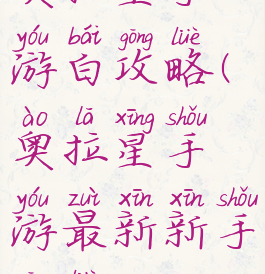 yóu bái gōng lüè
游白攻略(
ào lā xīng shǒu
奥拉星手
yóu zuì xīn xīn shǒu
游最新新手